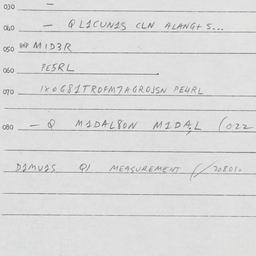 030 —
040 — Q L1CUN1S CLN ALANG+ S...
050 M1D3R
060 PE5RL
070 1X0G81TROFM7AGROJSN PE4RL
080 — Q M1DAL8ON M1DA,L (022
D1MU1S Q) MEASUREMENT (/208010